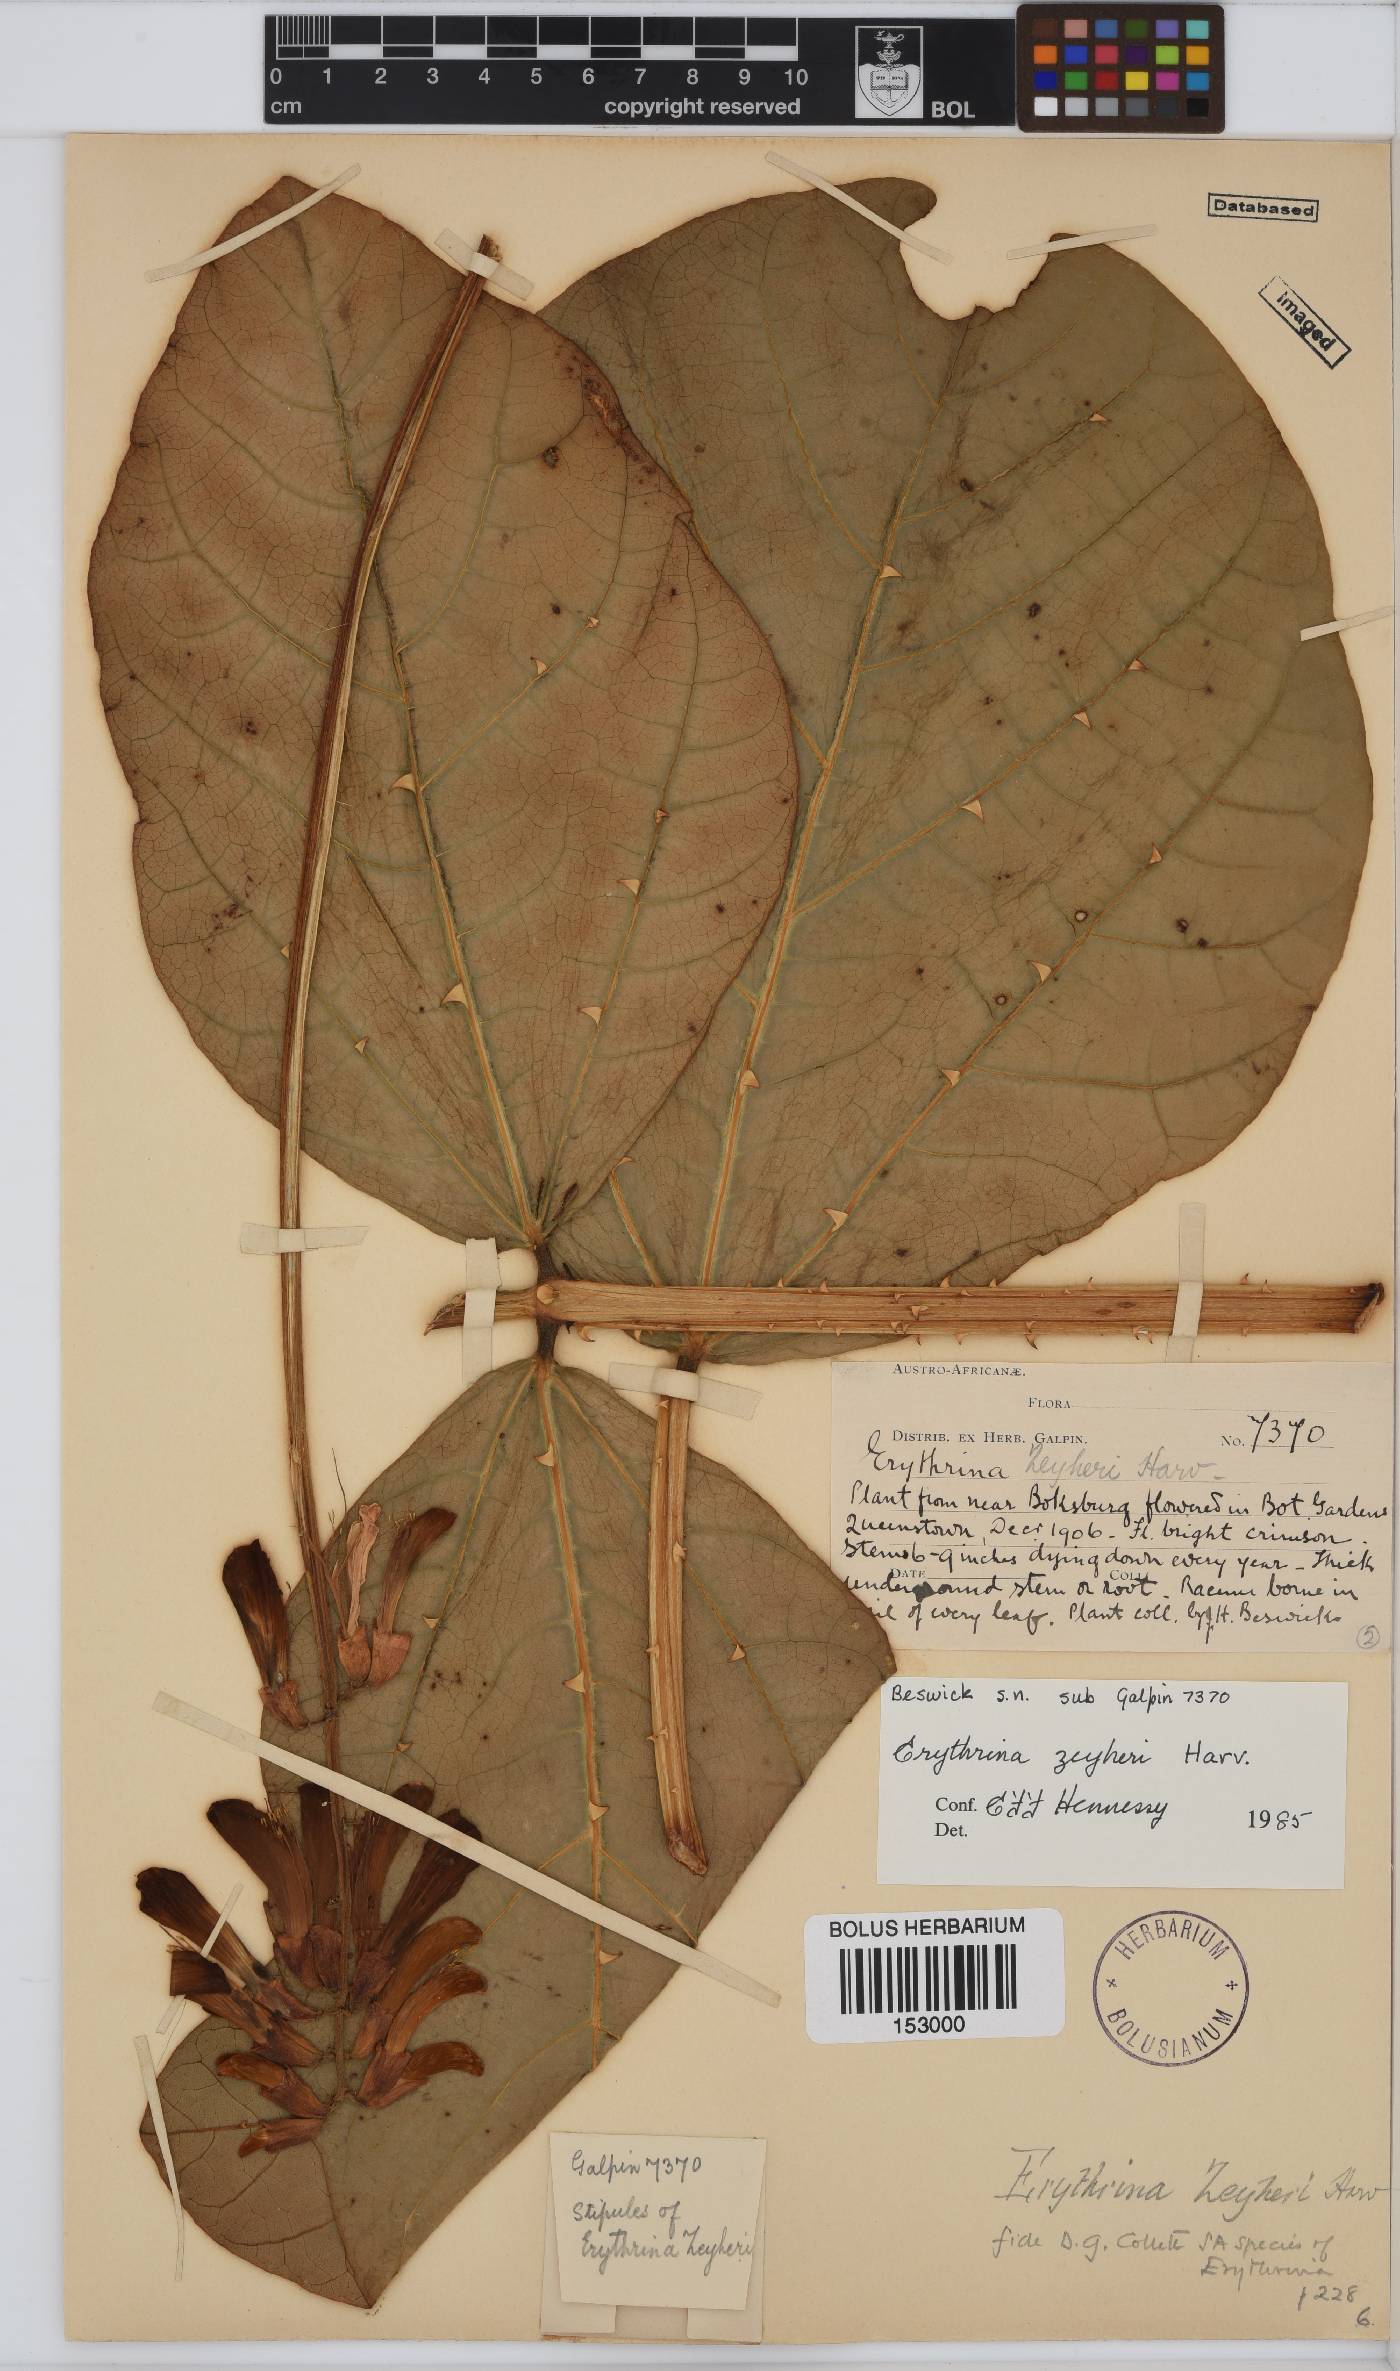 0 1 2 3 4 5 6 7 8 9 10
cm copyright reserved BOL
Databased
Imaged
AUSTRO-AFRICANÆ.
FLORA
DISTRIB. EX HERB. GALPIN. No. 7370
Erythrina Zeyheri Harv.
Plant from near Boksburg flowered in Bot. Gardens
Queenstown, Decr 1906 - Fl. bright crimson.
Stems 6-9 inches dying down every year - Thick
DATE COLL.
underground stem or root. Raceme borne in
of every leaf. Plant coll. by H. Beswicke
2
Beswick s.n. sub Galpin 7370
Erythrina zeyheri Harv.
Conf. EFF Hennessy
Det. 1985
BOLUS HERBARIUM
153000
HERBARIUM
BOLUSIANUM
Galpin 7370
Stipules of
Erythrina Zeyheri
Erythrina Zeyheri Harv
fide D.G. Collett SA species of
Erythrina
p 228
6.